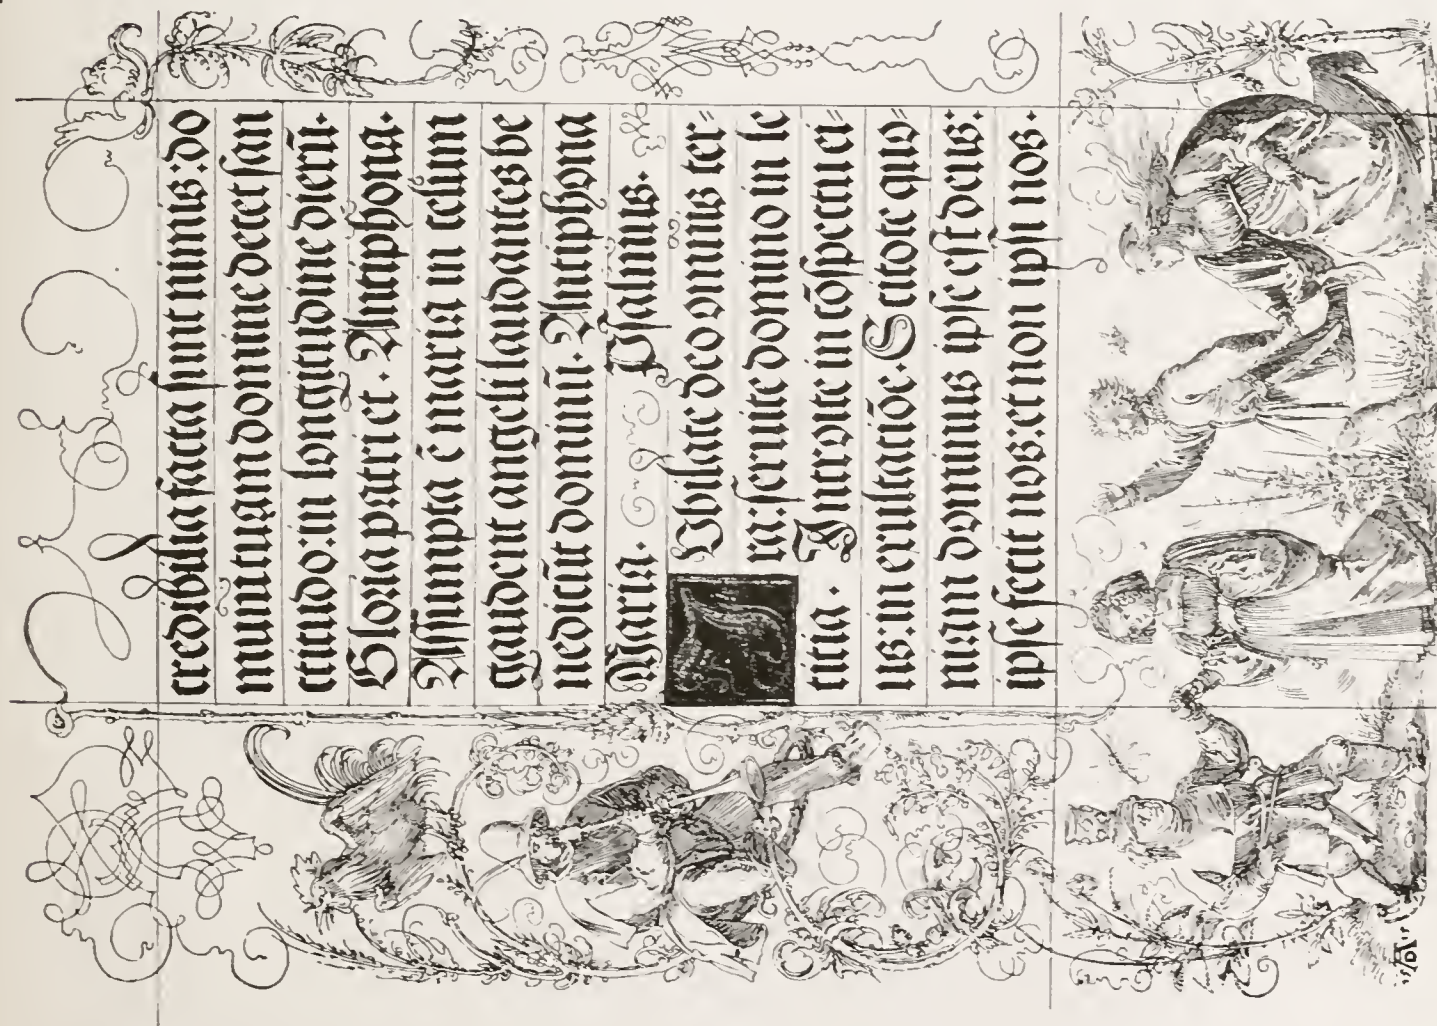 credibilia facta sunt nimis: do
mum tuam domine decet san
ctitudo: in longitudine dierū.
Gloria patri et. Antiphona.
Assumpta ē maria in celum
gaudent angeli laudantes be
nedicūt dominū. Antiphona
Maria. Psalmus.
IUbilate deo omnis ter=
ra: seruite domino in le
titia. Introite in cōspectu ei=
us: in exultatiōe. Scitote quo=
niam dominus ipse est deus:
ipse fecit nos: et non ipsi nos.
AD